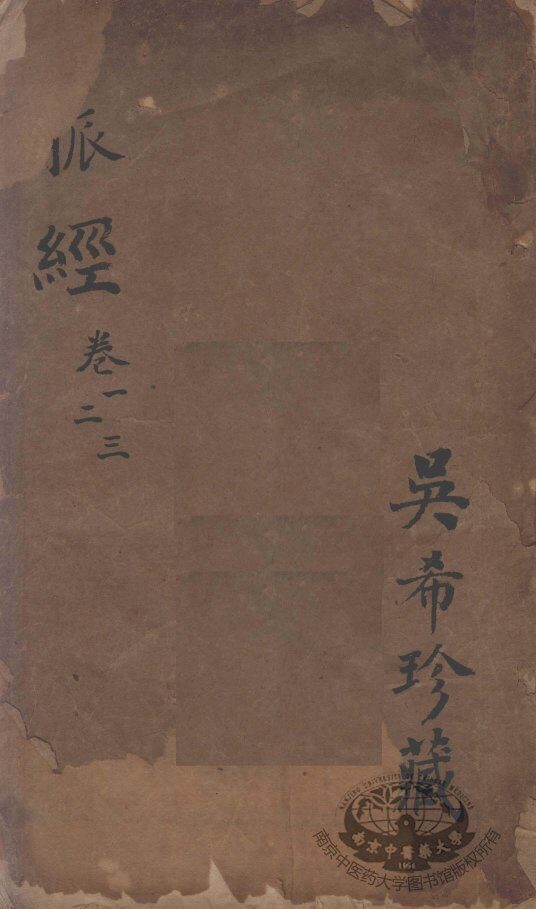 吳希珍藏
脈經
卷一二三
NANJING UNIVERSITY OF CHINESE MEDICINE
南京中醫藥大學
1954
南京中医药大学图书馆版权所有